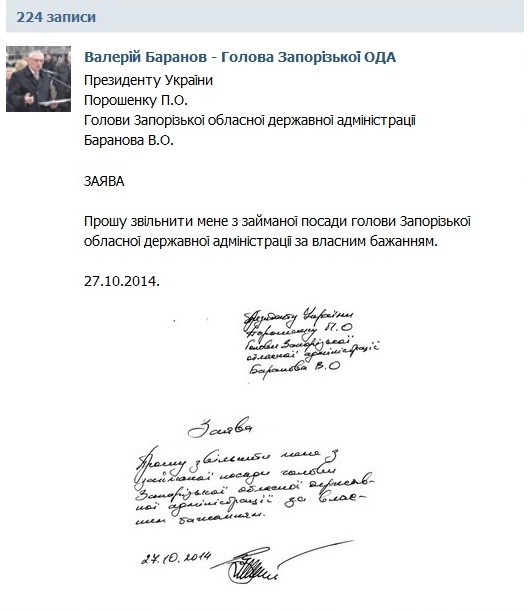 224 записи
Валерій Баранов - Голова Запорізької ОДА
Президенту України
Порошенку П.О.
Голови Запорізької обласної державної адміністрації
Баранова В.О.
ЗАЯВА
Прошу звільнити мене з займаної посади голови Запорізької
обласної державної адміністрації за власним бажанням.
27.10.2014.
Президенту України
Порошенку П.О
Голови Запорізької
обласної адміністрації
Баранова В.О
Заява
Прошу звільнити мене з
займаної посади голови
Запорізької обласної державної
ної адміністрації за влас-
ним бажанням.
27.10.2014